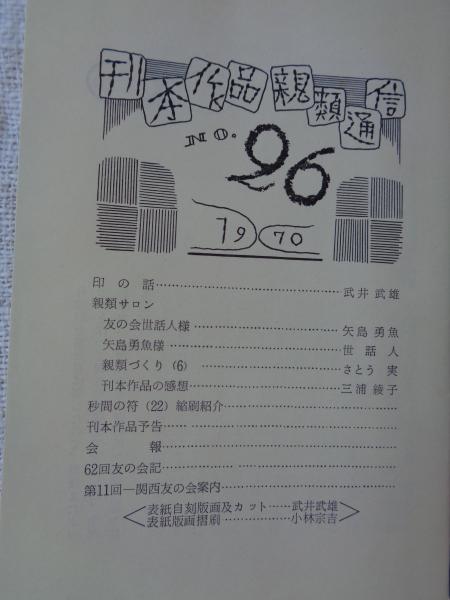 刊本作品親類通信
NO. 26
1970
印の話……武井武雄
親類サロン
友の会世話人様……矢島勇魚
矢島勇魚様……世話人
親類づくり(6)……さとう実
刊本作品の感想……三浦綾子
秒間の符(22)縮刷紹介……
刊本作品予告……
会報……
62回友の会記……
第11回―関西友の会案内……
表紙自刻版画及カット……武井武雄
表紙版画摺刷……小林宗吉